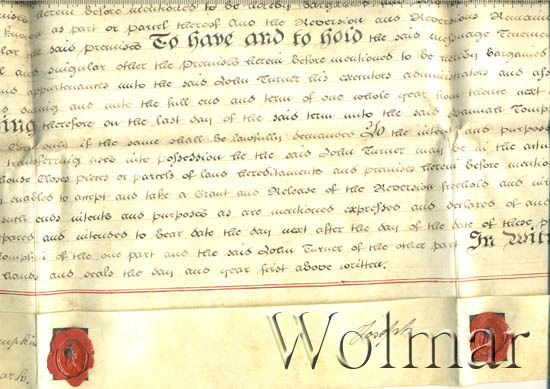 herein before mentioned to be hereby Bargained
known as part or parcel thereof And the Reversion and Reversions Remainder
the said premises To have and to hold the said messuage Tenement
and singular other the Premises herein before mentioned to be hereby Bargained
and appurtenances unto the said John Turner his executors administrators and
and unto the full end and term of one whole year from thence next
therefore on the last day of the said term unto the said Hannah
only if the same shall be lawfully demanded To the intent and purpose
transferring uses into possession he the said John Turner may be in the
house Closes pieces or parcels of land hereditaments and premises herein before
enabled to accept and take a Grant and Release of the Reversion freehold and
such uses intents and purposes as are mentioned expressed and declared of and
and intended to bear date the day next after the day of the date of these
of the one part and the said John Turner of the other part In
hands and seals the day and year first above written.
Joseph
Wolmar